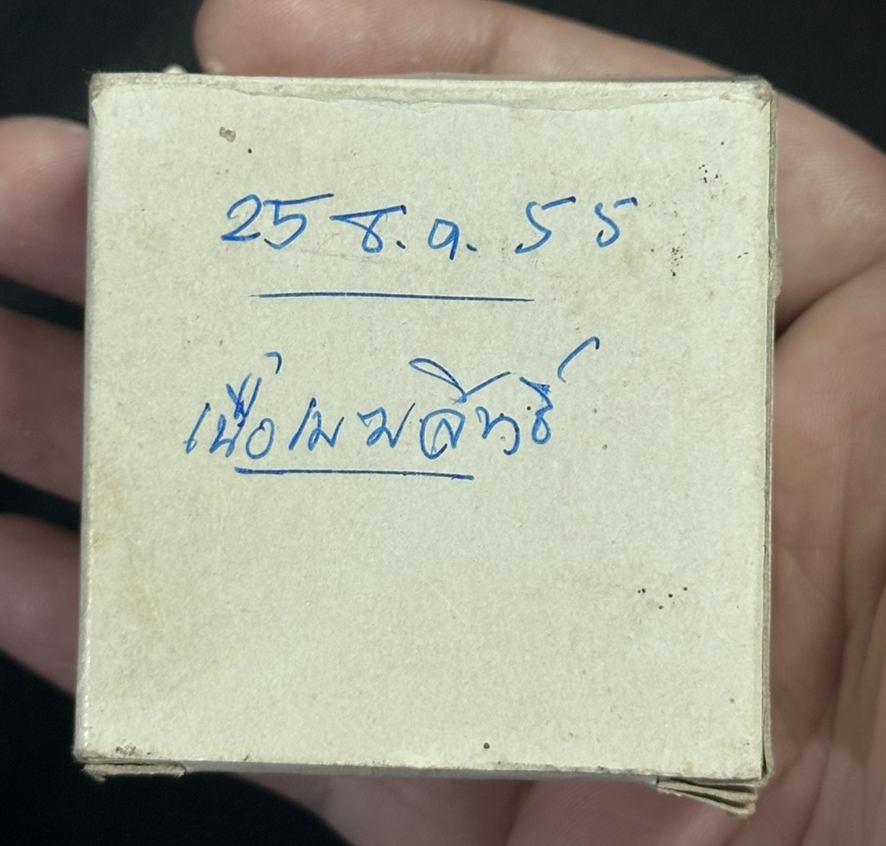 25 ธ.ค. 55
เนื้อเมฆสิทธิ์